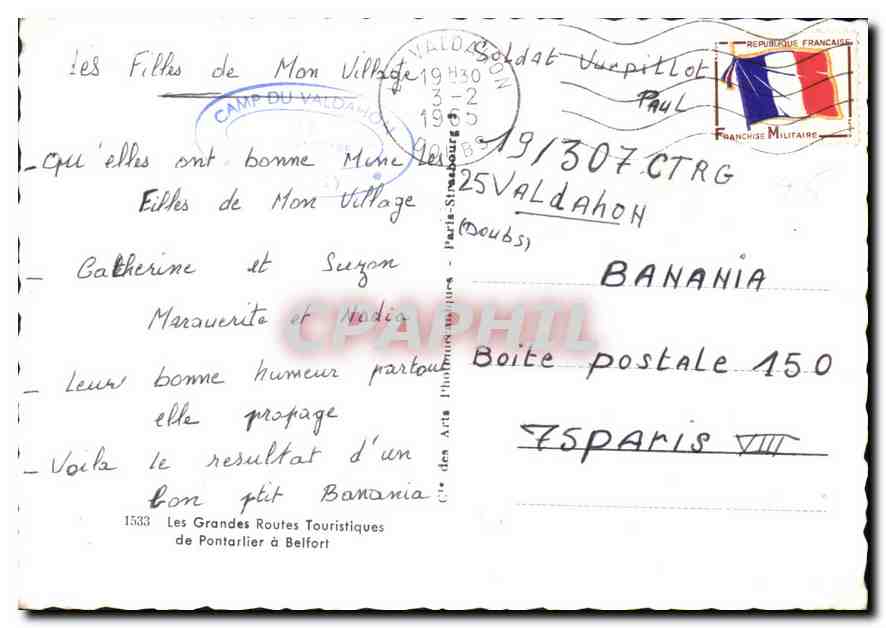 Les Filles de Mon Village
- Qu'elles ont bonne Mine Les
Filles de Mon Village
- Catherine et Suzon
Marguerite et Nadia
- Leur bonne humeur partout
elle propage
- Voila le resultat d'un
bon ptit Banania
1533 Les Grandes Routes Touristiques
de Pontarlier à Belfort
CAMP DU VALDAHON
VALDAHON
19H30
3-2
DOUBS
Cie des Arts Photomécaniques - Paris-Strasbourg
Soldat Vurpillot
Paul
19/307 CTRG
25 VALdAHON
(Doubs)
REPUBLIQUE FRANCAISE
FRANCHISE MILITAIRE
BANANIA
Boite postale 150
75 PARIS VIII
CPAPHIL